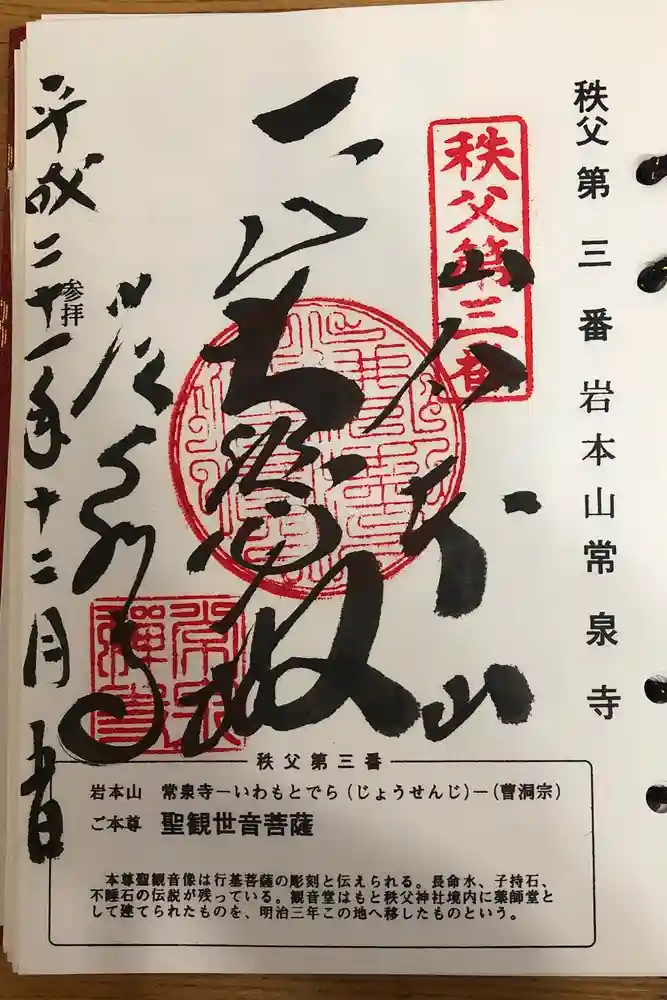 秩父第三番岩本山常泉寺
秩父第三番
岩本山
常泉寺
参拝
平成二十一年十二月
秩父第三番
岩本山　常泉寺－いわもとでら（じょうせんじ）－（曹洞宗）
ご本尊　聖観世音菩薩
本尊聖観音像は行基菩薩の彫刻と伝えられる。長命水、子持石、
不睡石の伝説が残っている。観音堂はもと秩父神社境内に薬師堂と
して建てられたものを、明治三年この地へ移したものという。